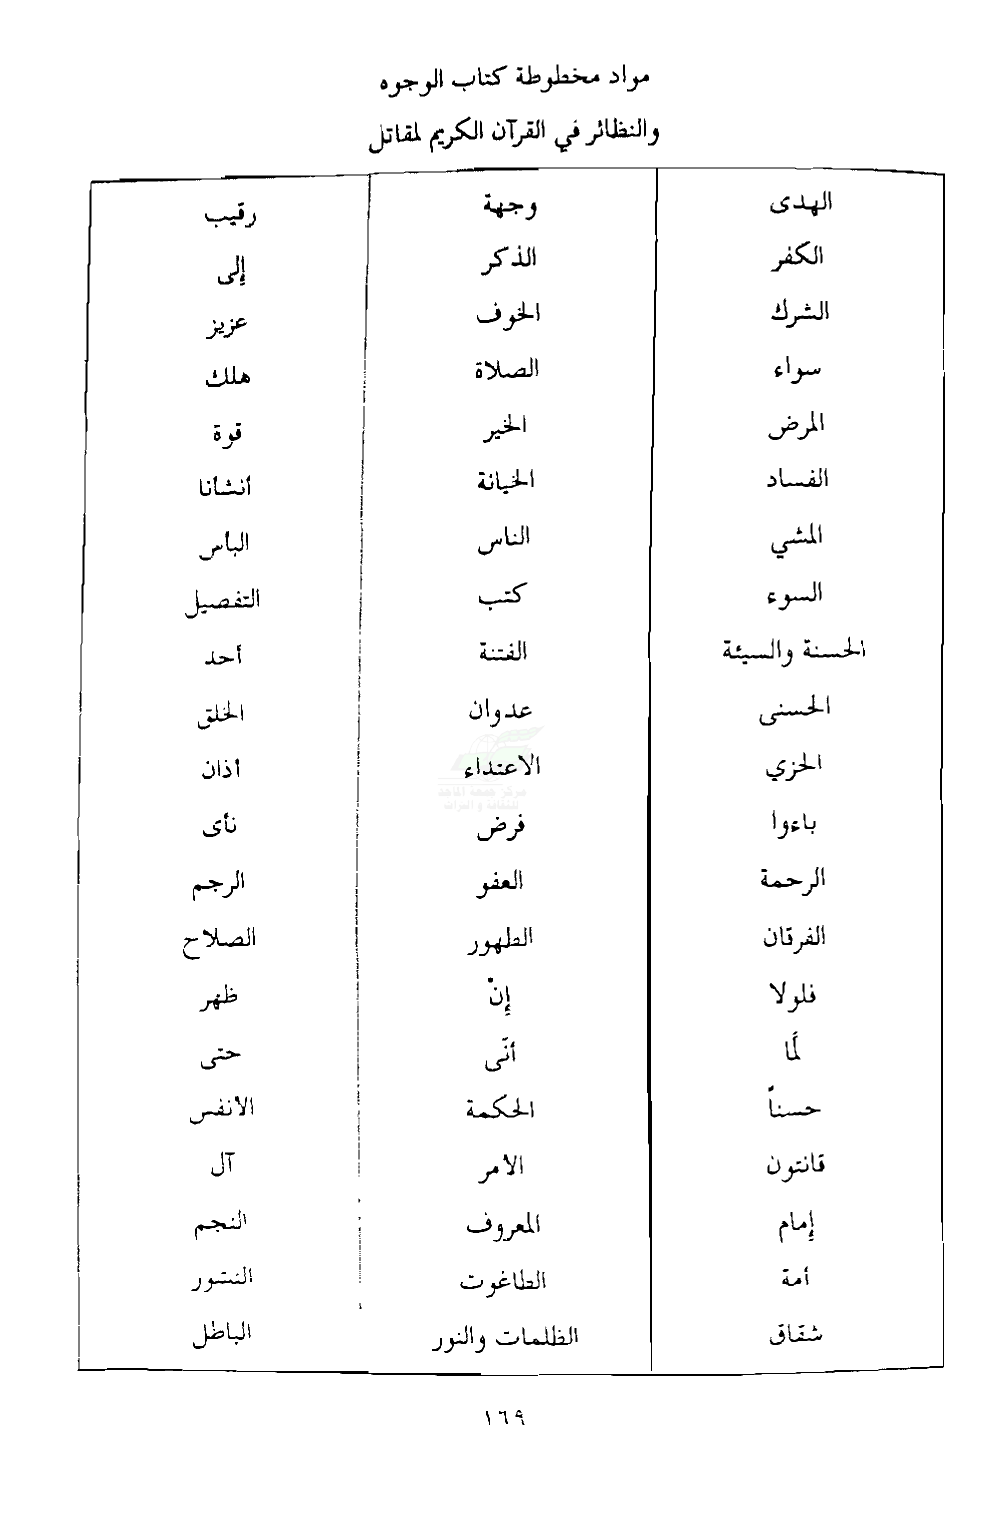 مواد مخطوطة كتاب الوجوه
والنظائر في القرآن الكريم لمقاتل
الهدى وجهة رقيب
الكفر الذكر إلى
الشرك الخوف عزيز
سواء الصلاة هلك
المرض الخير قوة
الفساد الخيانة أنشأنا
المشي الناس البأس
السوء كتب التفصيل
الحسنة والسيئة الفتنة أحد
الحسنى عدوان الخلق
الخزي الاعتداء أذان
مركز جمعة الماجد
للثقافة و التراث
باءوا فرض نأى
الرحمة العفو الرجم
الفرقان الطهور الصلاح
فلولا إنْ ظهر
لَما أنّى حتى
حسناً الحكمة الانفس
قانتون الامر آل
إمام المعروف النجم
أمة الطاغوت النشور
شقاق الظلمات والنور الباطل
١٦٩